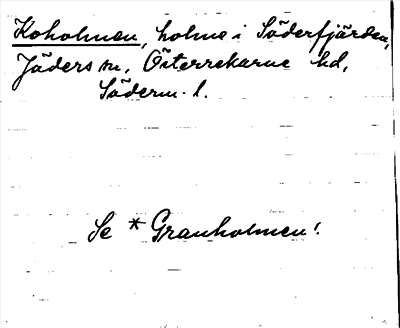 Koholmen, holme i Söderfjärden,
Jäders sn, Österrekarne hd,
Söderm. l.
Se *Granholmen!